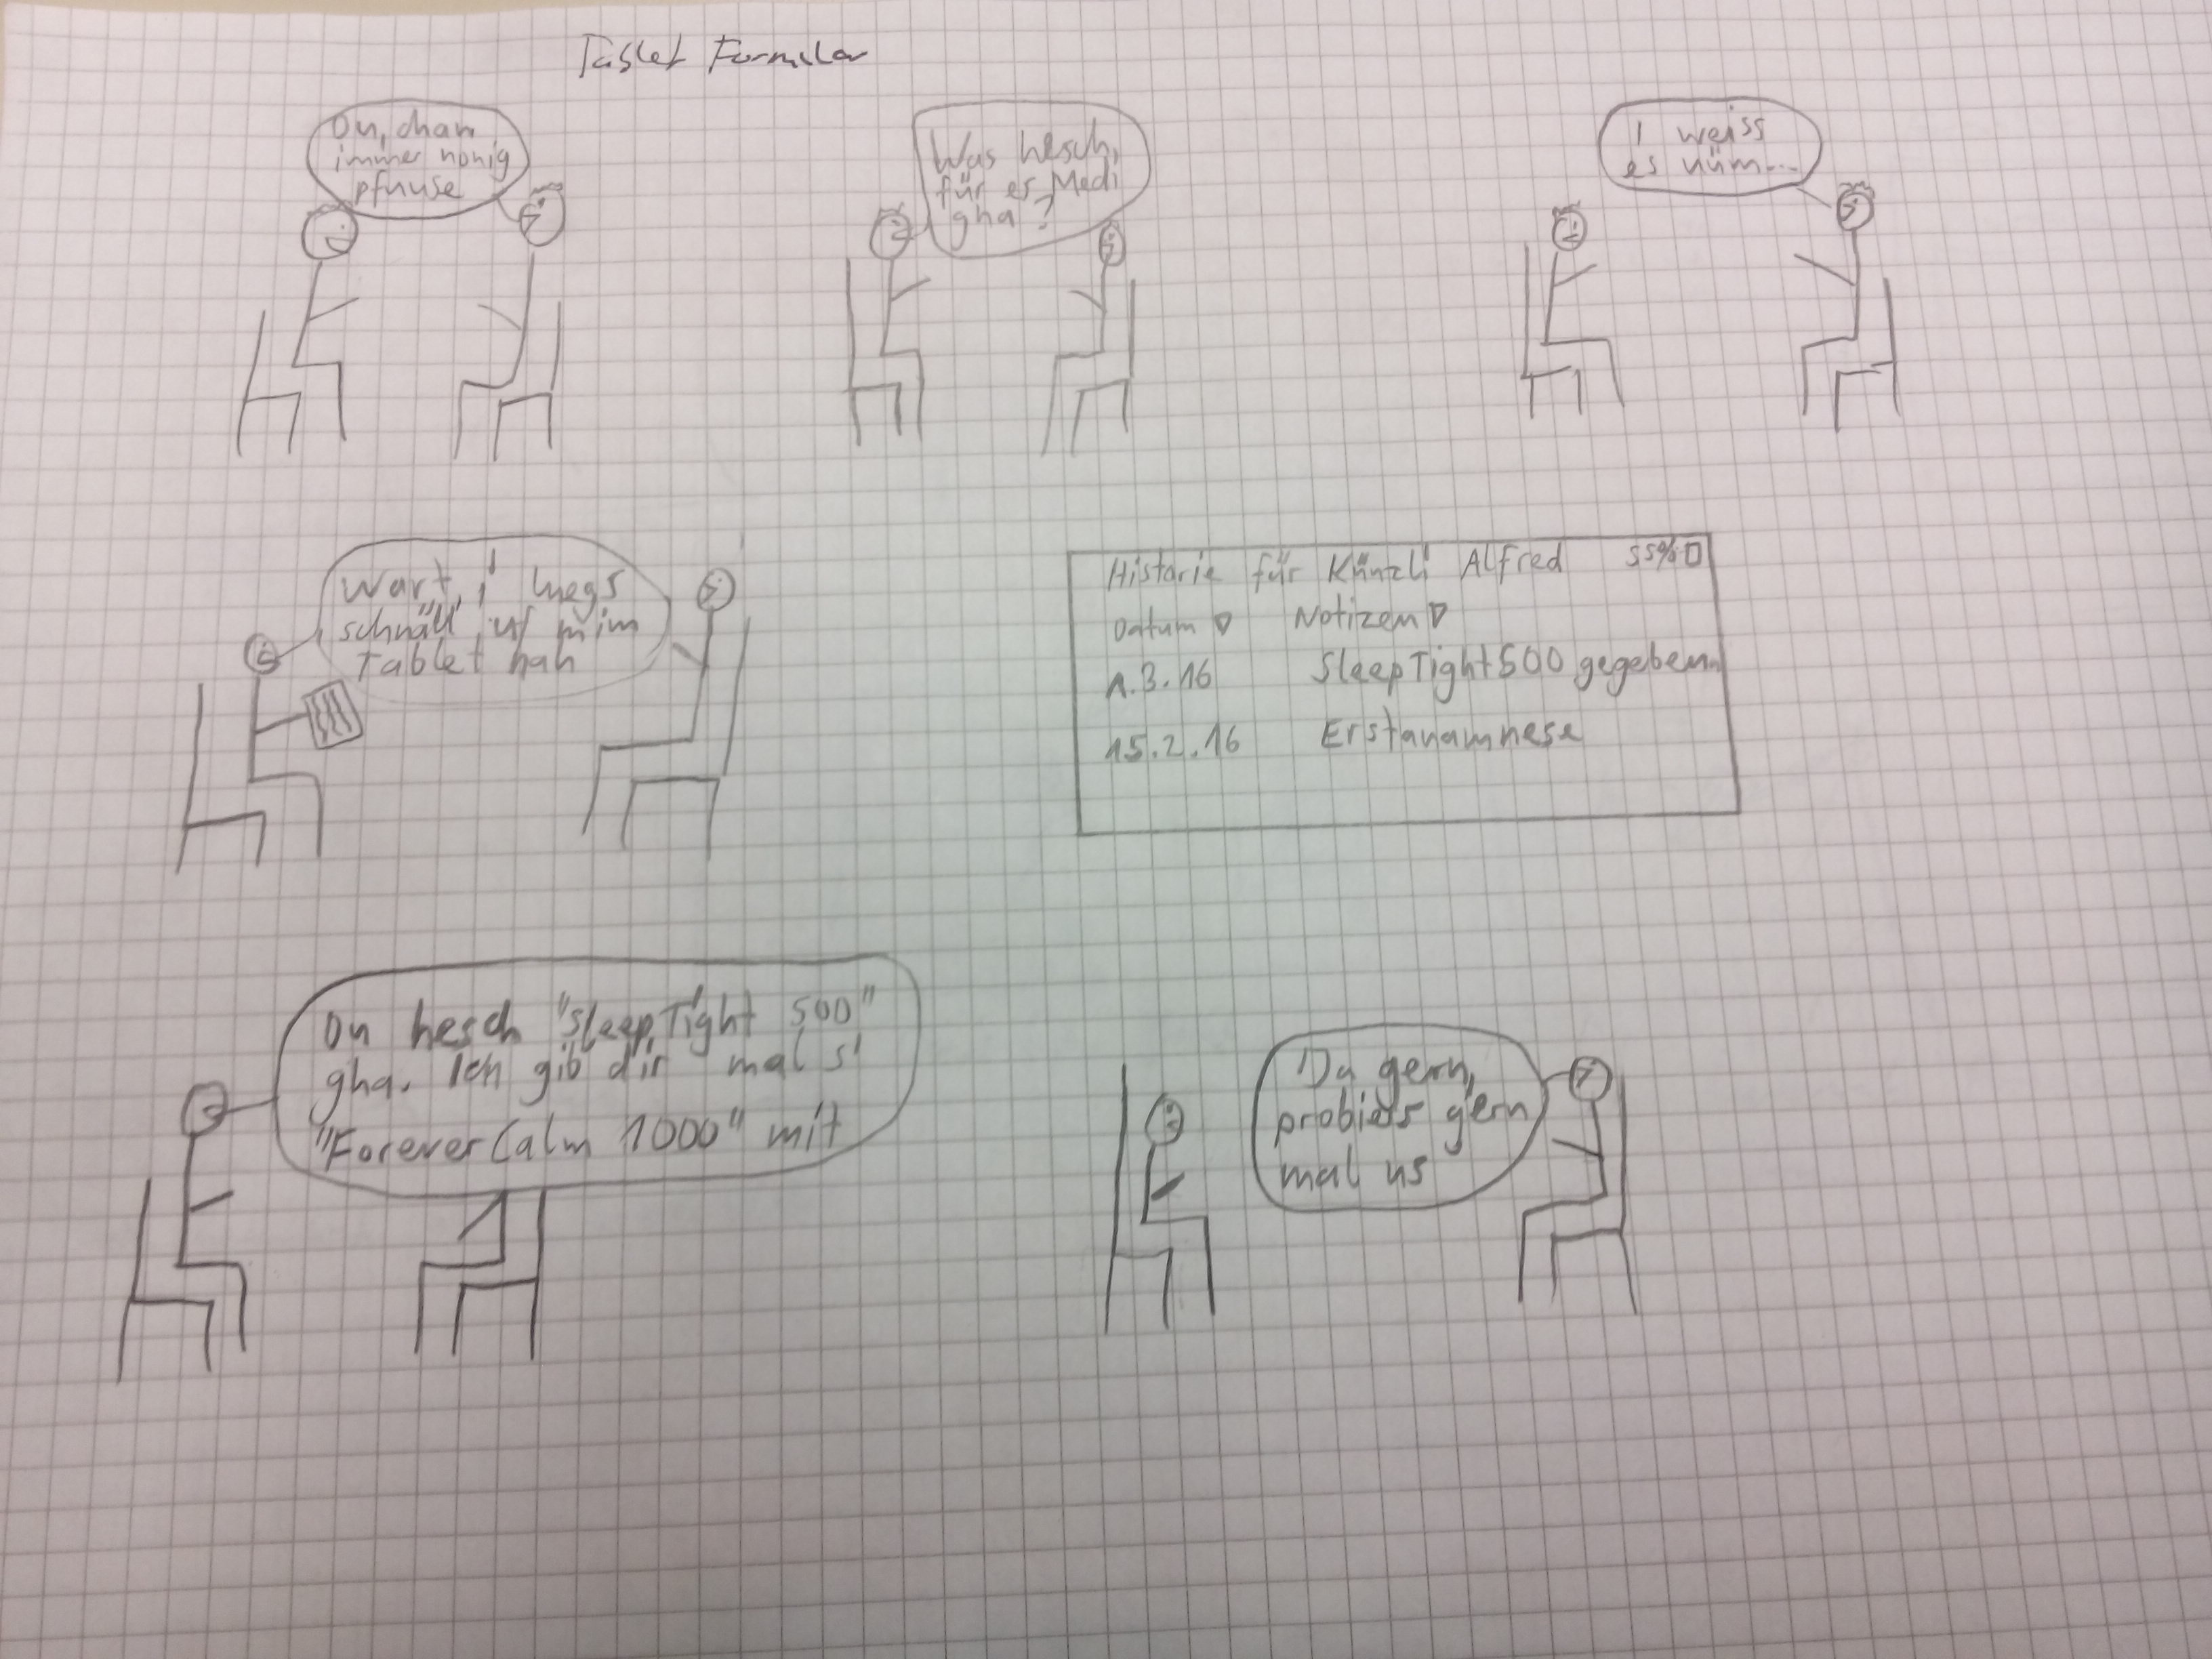 Tablet Formular
Du, chan
immer nonig
pfnuse
Was hesch,
für es Medi
gha?
I weiss
es nüm...
Wart, i luegs
schnäll uf mim
Tablet nah
Historie für Künzli Alfred 55%
Datum Notizen
1.3.16 SleepTight500 gegeben
15.2.16 Erstanamnese
Du hesch "SleepTight 500"
gha. Ich gib dir mal s'
"ForeverCalm 1000" mit
Da gern,
probiers gern
mal us